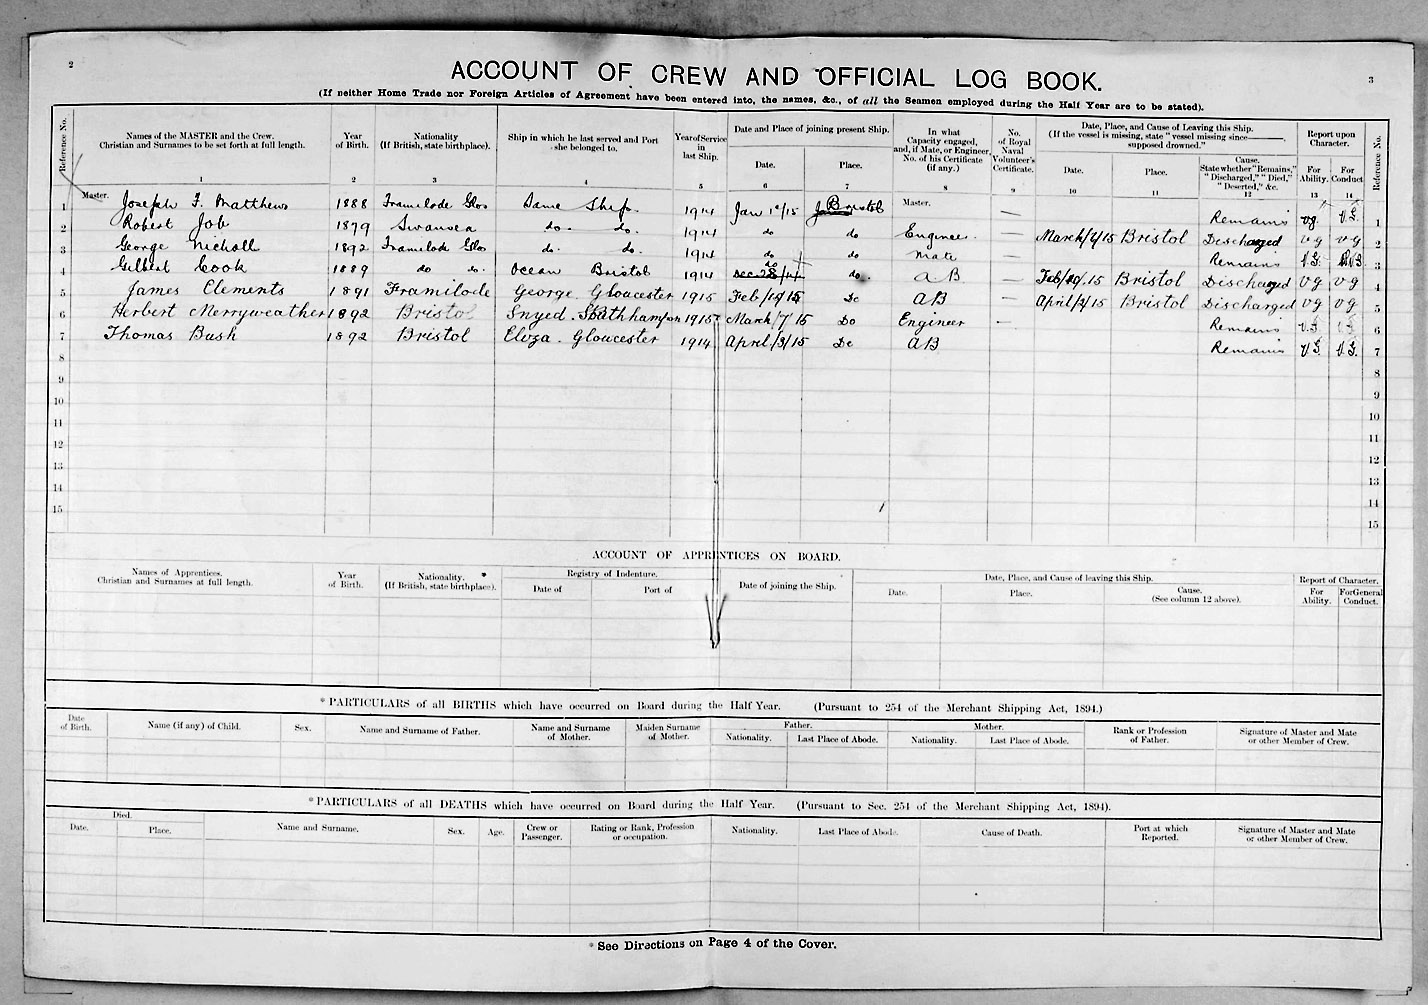 2
3
ACCOUNT OF CREW AND OFFICIAL LOG BOOK.
(If neither Home Trade nor Foreign Articles of Agreement have been entered into, the names, &c., of all the Seamen employed during the Half Year are to be stated).
Reference No. Names of the MASTER and the Crew. Christian and Surnames to be set forth at full length. Year of Birth. Nationality (If British, state birthplace). Ship in which he last served and Port she belonged to. Year of Service in last Ship. Date and Place of joining present Ship. Date. Place. In what Capacity engaged, and, if Mate, or Engineer, No. of his Certificate (if any.) No. of Royal Naval Volunteer's Certificate. Date, Place, and Cause of Leaving this Ship. (If the vessel is missing, state "vessel missing since——, supposed drowned.") Date. Place. Cause. State whether "Remains," "Discharged," "Died," "Deserted," &c. Report upon Character. For Ability. For Conduct. Reference No.
1 2 3 4 5 6 7 8 9 10 11 12 13 14
1 Master. Joseph F. Matthews 1888 Framilode Glos Same Ship. 1914 Jan 1st/15 Bristol Master. — Remains v.g. V.G. 1
2 Robert Job 1879 Swansea do. do. 1914 do do Engineer. — March/7/15 Bristol Discharged v g v g 2
3 George Nicholl 1892 Framilode Glo do. do. 1914 do do Mate — Remains V.G. V.G. 3
4 Gilbert Cook 1889 do do. Ocean Bristol 1914 do Dec 28/14 do A B — Feb/19/15 Bristol Discharged v g v g 4
5 James Clements 1891 Framilode George. Gloucester 1915 Feb/19/15 Do A B — April/3/15 Bristol Discharged v g v g 5
6 Herbert Merryweather 1892 Bristol Snyed. Southhampton 1915 March/7/15 Do Engineer — Remains V.G. V.G. 6
7 Thomas Bush 1892 Bristol Eliza. Gloucester 1914 April/3/15 Do A B Remains V.G. V.G. 7
8 8
9 9
10 10
11 11
12 12
13 13
14 14
15 15
ACCOUNT OF APPRENTICES ON BOARD.
Names of Apprentices. Christian and Surnames at full length. Year of Birth. Nationality. (If British, state birthplace). Registry of Indenture. Date of Port of Date of joining the Ship. Date, Place, and Cause of leaving this Ship. Date. Place. Cause. (See column 12 above). Report of Character. For Ability. For General Conduct.
*PARTICULARS of all BIRTHS which have occurred on Board during the Half Year. (Pursuant to 254 of the Merchant Shipping Act, 1894.)
Date of Birth. Name (if any) of Child. Sex. Name and Surname of Father. Name and Surname of Mother. Maiden Surname of Mother. Father. Nationality. Last Place of Abode. Mother. Nationality. Last Place of Abode. Rank or Profession of Father. Signature of Master and Mate or other Member of Crew.
*PARTICULARS of all DEATHS which have occurred on Board during the Half Year. (Pursuant to Sec. 254 of the Merchant Shipping Act, 1894).
Died. Date. Place. Name and Surname. Sex. Age. Crew or Passenger. Rating or Rank, Profession or occupation. Nationality. Last Place of Abode. Cause of Death. Port at which Reported. Signature of Master and Mate or other Member of Crew.
*See Directions on Page 4 of the Cover.